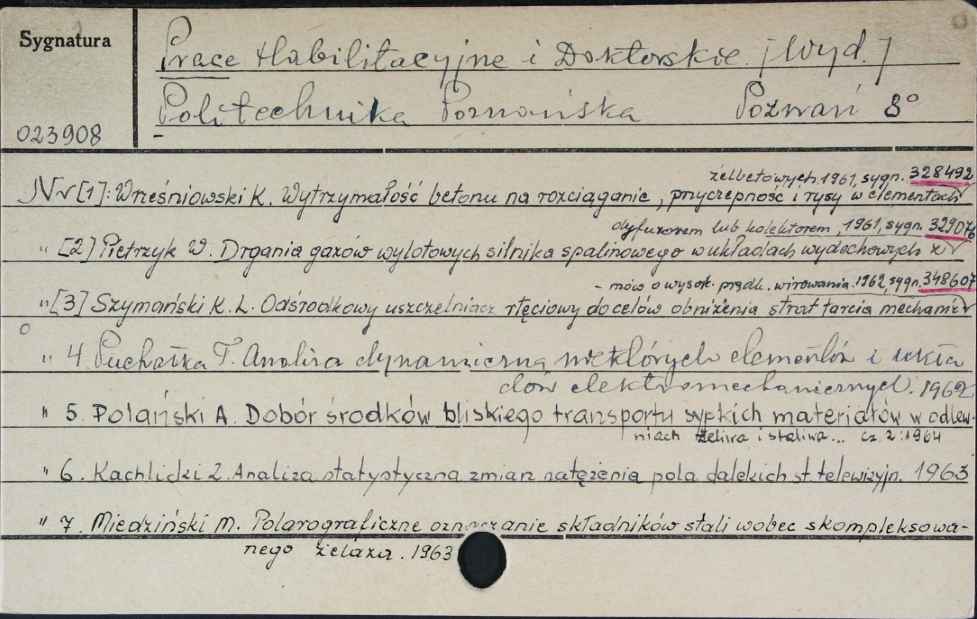 Sygnatura
Prace Habilitacyjne i Doktorskie. [Wyd.]
Politechnika Poznańska Poznań 8°
023908
żelbetowych 1961, sygn. 328492
Nr [1]: Wreśniowski K. Wytrzymałość betonu na rozciąganie, przyczepność i rysy w elementach
dyfuzorem lub kolektorem, 1961, sygn. 329076
" [2] Pietrzyk W. Drgania gazów wylotowych silnika spalinowego w układach wydechowych z
- mów o wysok. prędk. wirowania. 1962, sygn. 348607
" [3] Szymański K. L. Odśrodkowy uszczelniacz rtęciowy do celów obniżenia strat tarcia mechaniz
" 4. Puchałka T. Analiza dynamiczna niektórych elementów i ukła
dów elektromechanicznych. 1962
" 5. Polański A. Dobór środków bliskiego transportu sypkich materiałów w odlew-
niach żeliwa i staliwa... cz. 2: 1964
" 6. Kachlicki Z. Analiza statystyczna zmian natężenia pola dalekich st. telewizyjn. 1963
" 7. Miedziński M. Polarograficzne oznaczanie składników stali wobec skompleksowa-
nego żelaza. 1963